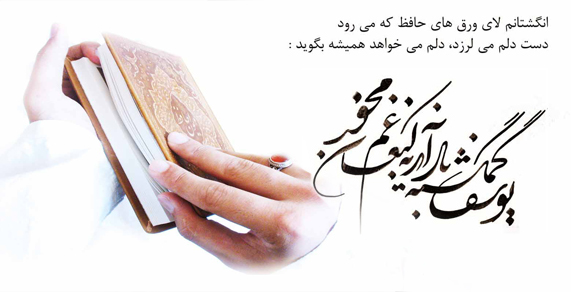 انگشتانم لای ورق های حافظ که می رود
دست دلم می لرزد، دلم می خواهد همیشه بگوید :
یوسف گمگشته باز آید به کنعان غم مخور